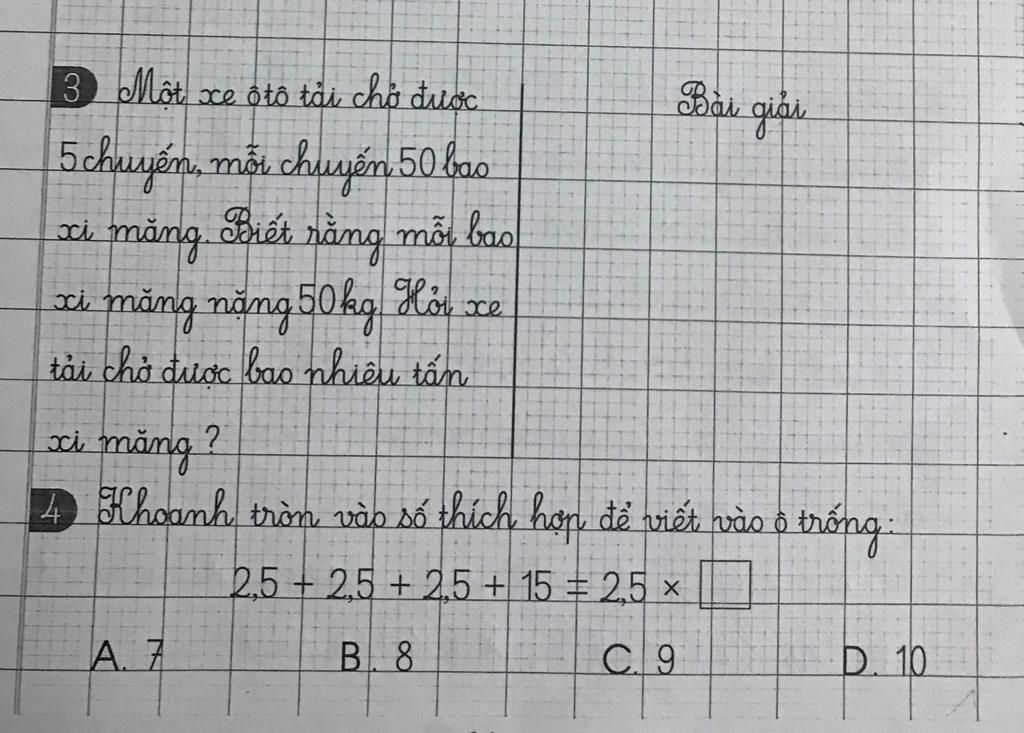 3 Một xe ôtô tải chở được
5 chuyến, mỗi chuyến 50 bao
xi măng. Biết rằng mỗi bao
xi măng nặng 50kg Hỏi xe
tải chở được bao nhiêu tấn
xi măng?
Bài giải
4 Khoanh tròn vào số thích hợp để viết vào ô trống:
2,5 + 2,5 + 2,5 + 15 = 2,5 × □
A. 7 B. 8 C. 9 D. 10